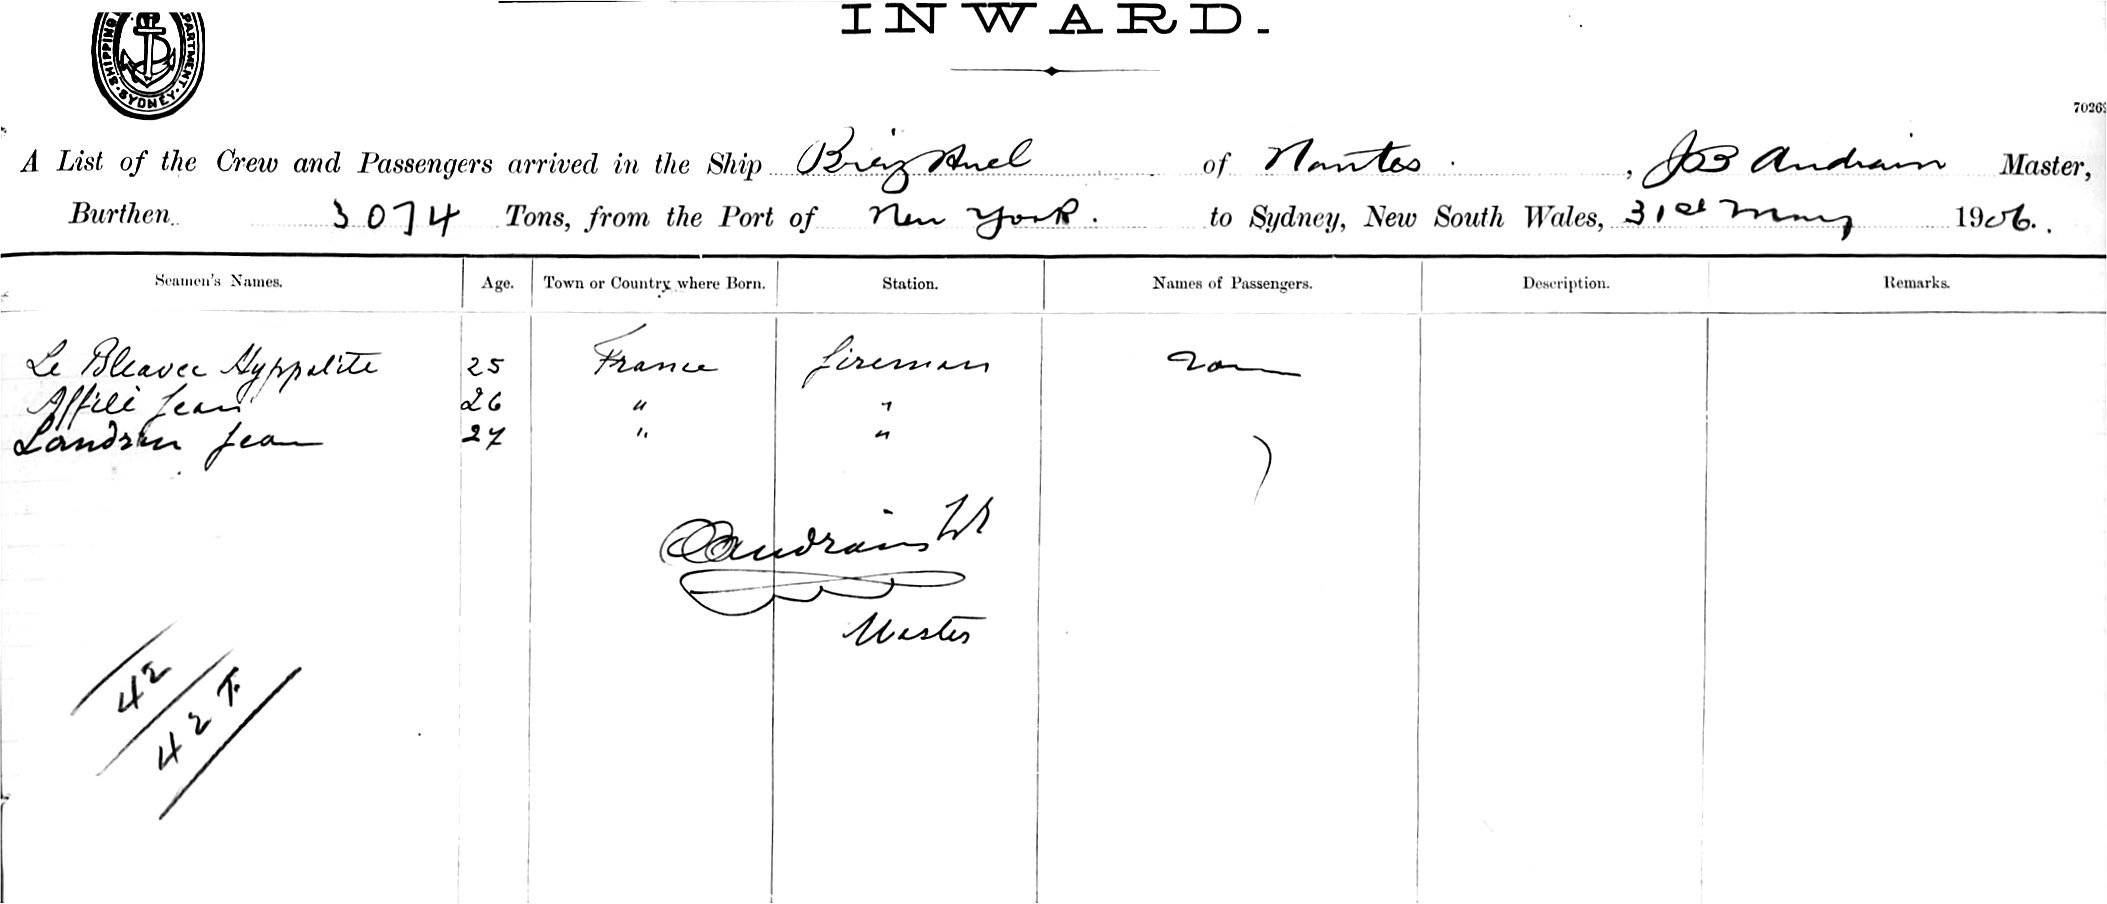 INWARD.
SHIPPING DEPARTMENT. SYDNEY.
7026
A List of the Crew and Passengers arrived in the Ship Breiz Huel of Nantes, JB Andrain Master,
Burthen 3074 Tons, from the Port of New York. to Sydney, New South Wales, 31st May 1906.
Seamen's Names. Age. Town or Country where Born. Station. Names of Passengers. Description. Remarks.
Le Bleavec Hyppolite 25 France fireman
Affilé Jean 26 " "
Landren Jean 27 " "
Andrain
Master
42
42 T.